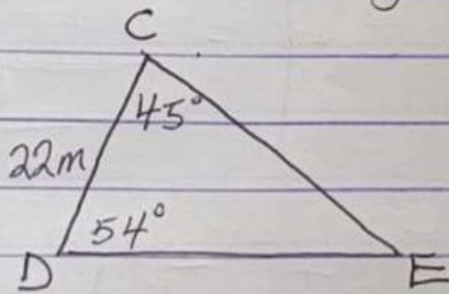 C
45°
22m
54°
D
E